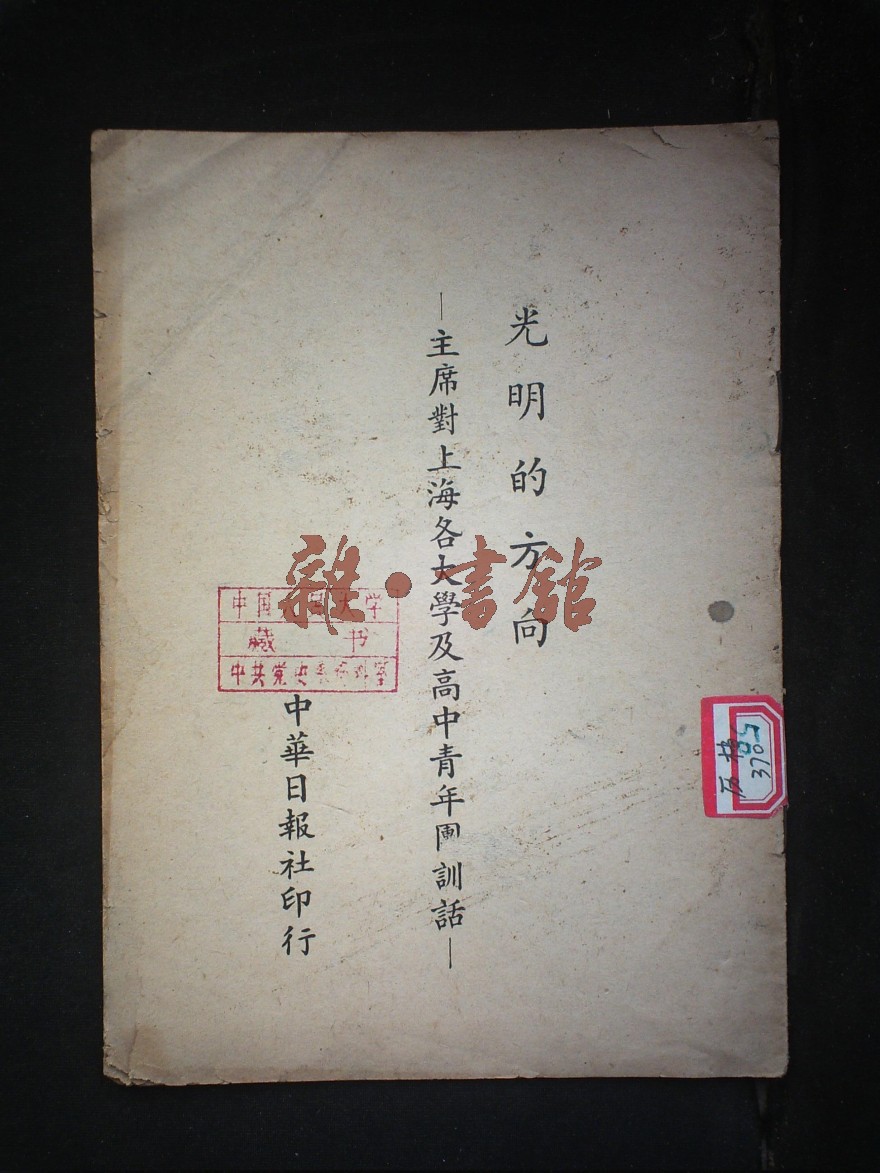 光明的方向
—主席對上海各大學及高中青年團訓話—
中華日報社印行
中国人民大学
藏书
中共党史系资料室
雜·書館
370